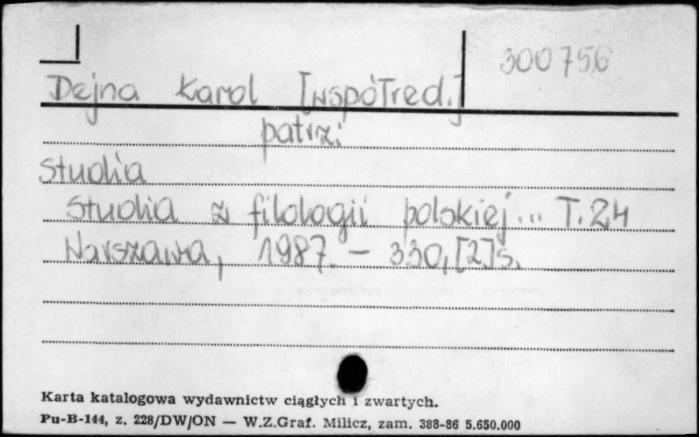 300756
Dejna Karol [współred.]
patrz:
Studia
Studia z filologii polskiej... T. 24
Warszawa, 1987. - 330, [2] s.
Karta katalogowa wydawnictw ciągłych i zwartych.
Pu-B-144, z. 228/DW/ON — W.Z.Graf. Milicz, zam. 388-86 5.650.000